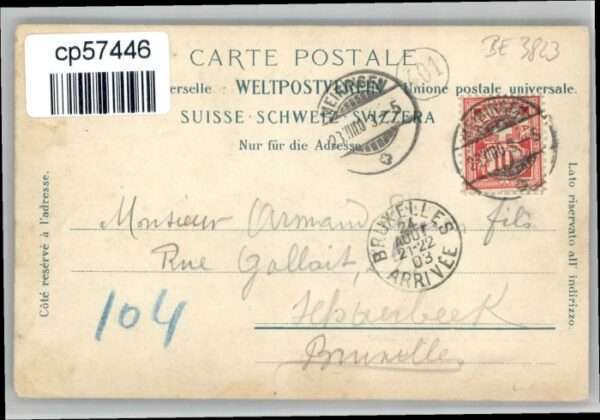 cp57446
BE 3823
CARTE POSTALE
erselle WELTPOSTVEREIN Unione postale universale.
SUISSE·SCHWEIZ·SVIZZERA
Nur für die Adresse
MEIRINGEN
401
BRUXELLES
24
AOUT
21-22
03
ARRIVÉE
10
Côté resérvé à l'adresse.
Lato riservato all' indirizzo.
Monsieur Armand fils
Rue Gallait,
104
Bruxelles.